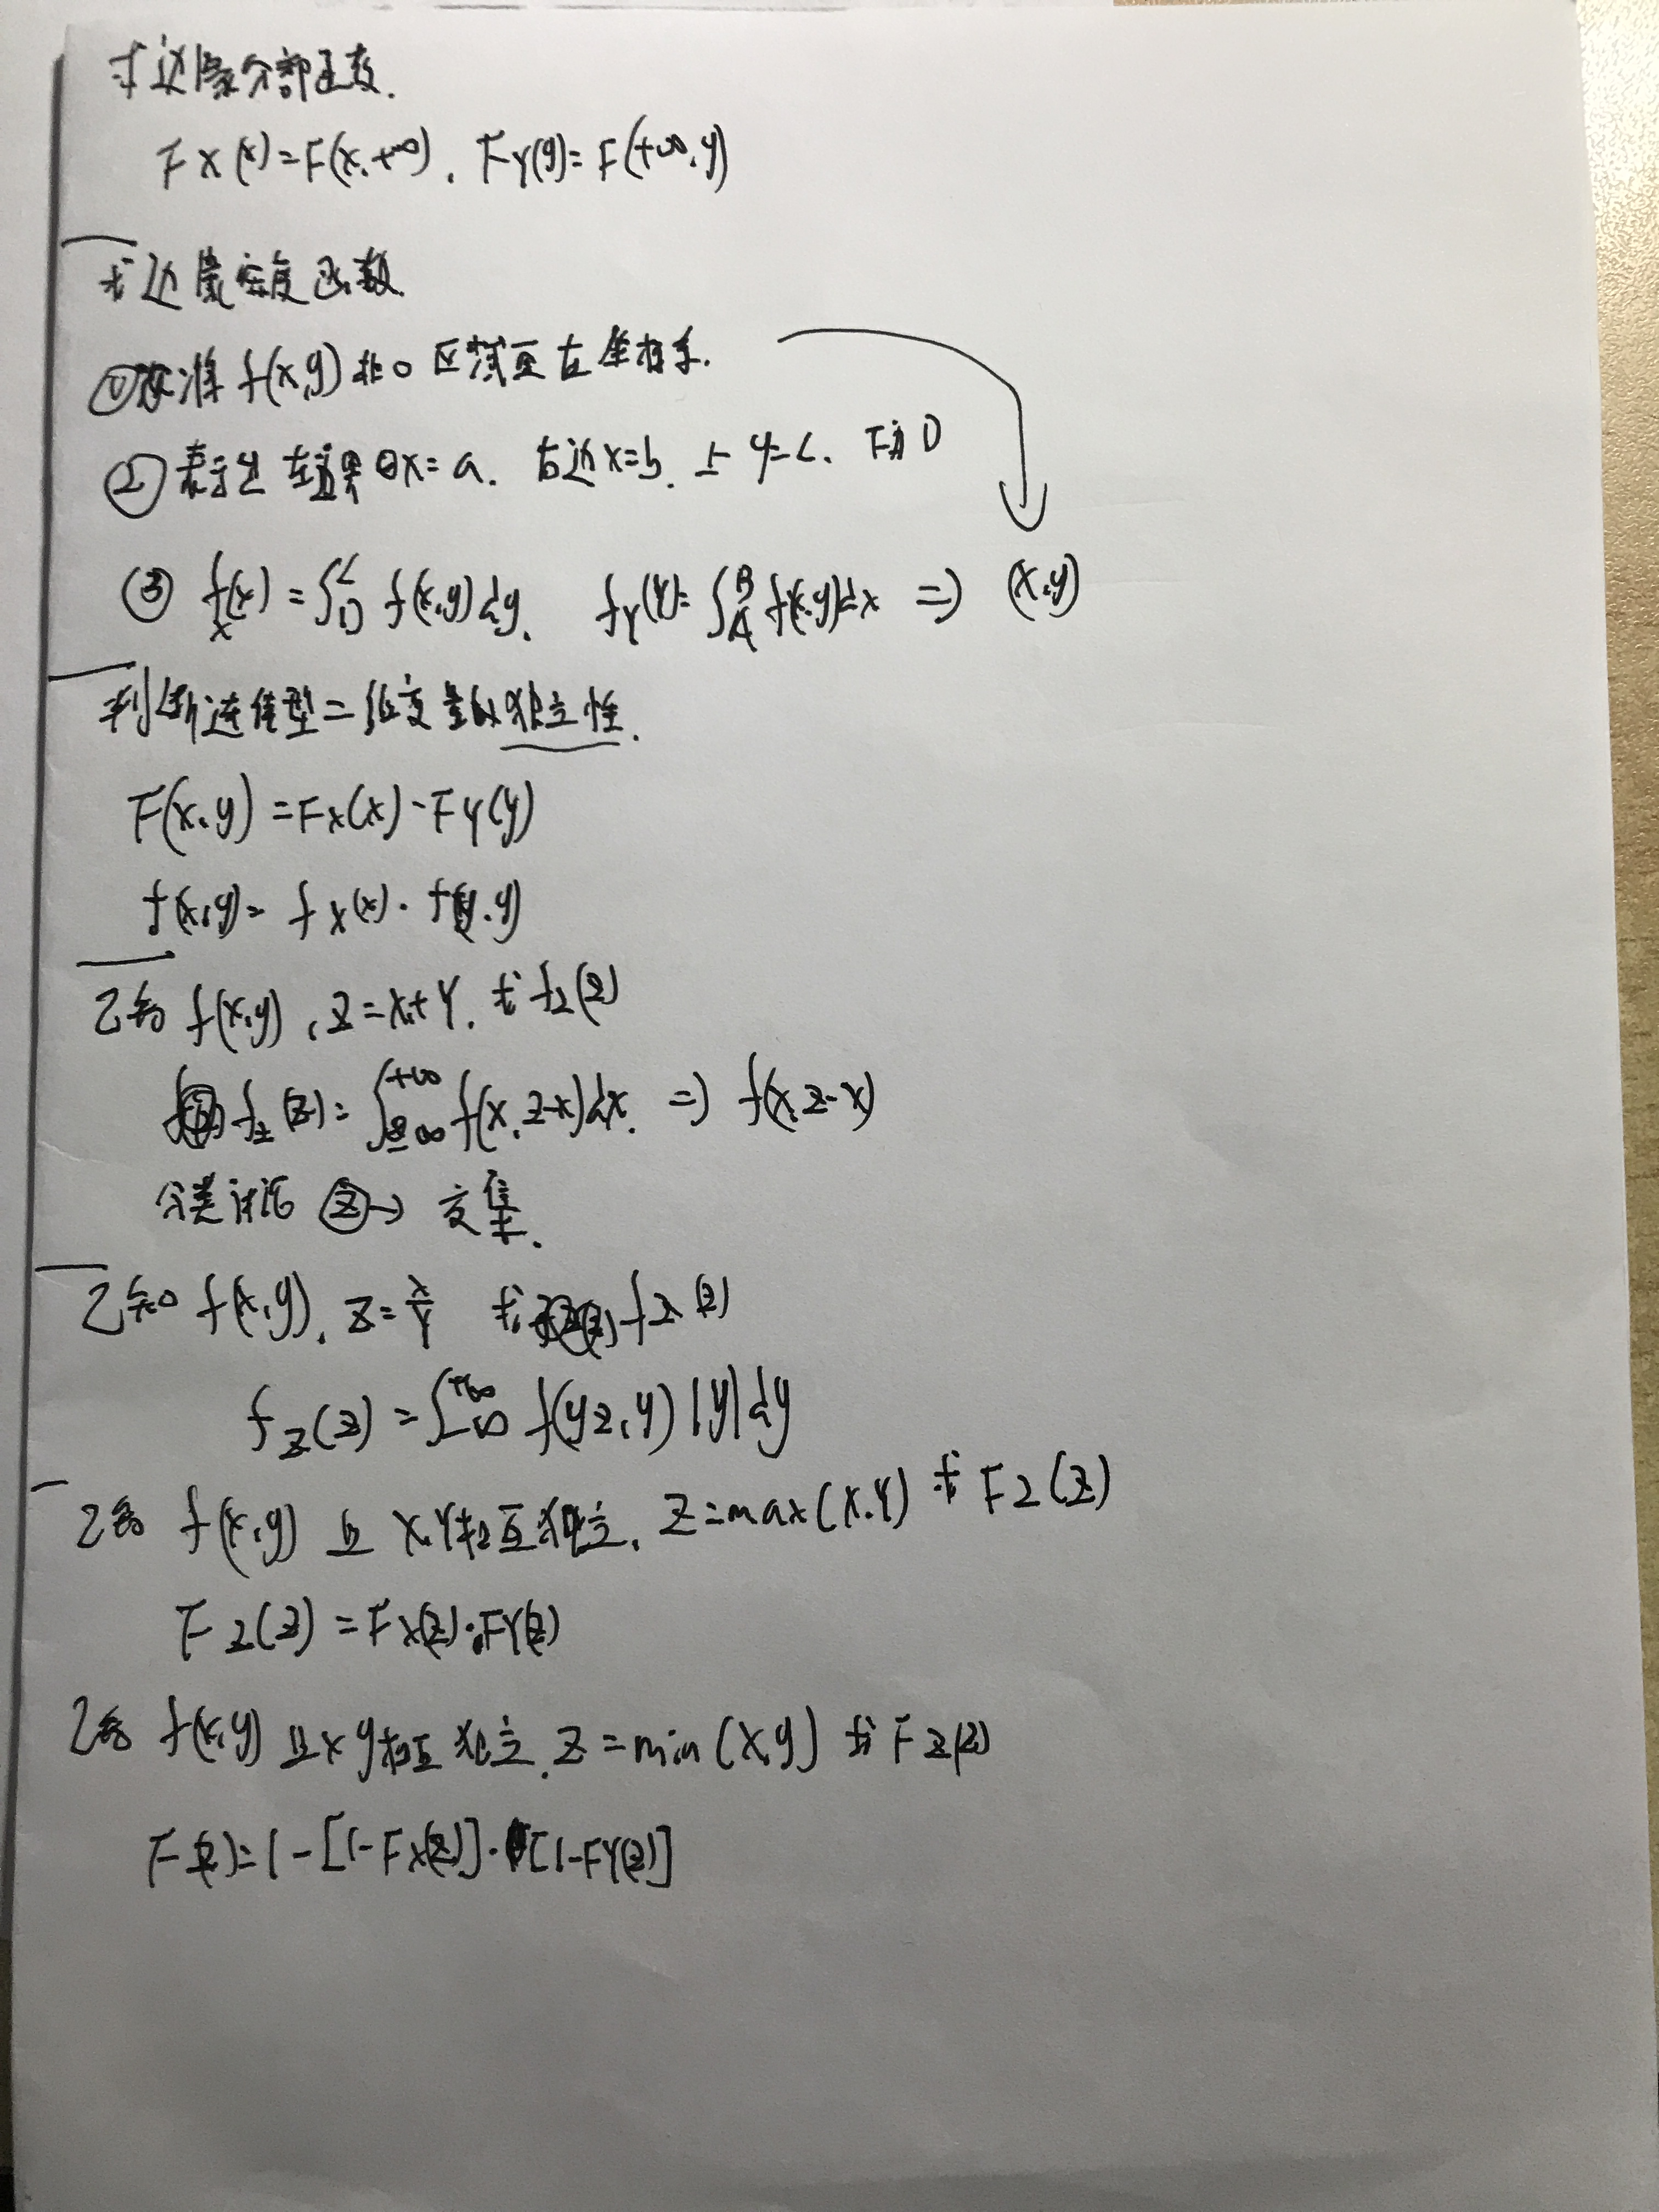 求边缘分部函数.
FX(x)=F(x,+∞). FY(y)=F(+∞,y)
求边缘密度函数.
① 将 f(x,y) 非0区域画在坐标系.
② 表示出 左边界 x=a. 右边x=b. 上 y=c. 下 D
③ fX(x)=∫_D^C f(x,y)dy. fY(Y)=∫_A^B f(x,y)dx => (x,y)
判断连续型二维变量的独立性.
F(x,y)=FX(x)·FY(y)
f(x,y)=fX(x)·f(y.y)
已知 f(x,y), Z=X+Y. 求 fZ(z)
fZ(z)=∫_{-∞}^{+∞} f(x,z-x)dx. => f(x,z-x)
分类讨论 ②→ 交集.
已知 f(x,y), Z=X/Y 求 fZ(z)
fZ(z)=∫_{-∞}^{+∞} f(yz,y)|y|dy
已知 f(x,y) 且 X,Y相互独立. Z=max(X,Y) 求 FZ(z)
FZ(z)=FX(z)·FY(z)
已知 f(x,y) 且 x y相互独立. Z=min(X,y) 求 FZ(z)
F(z)=1-[1-FX(z)]·[1-FY(z)]